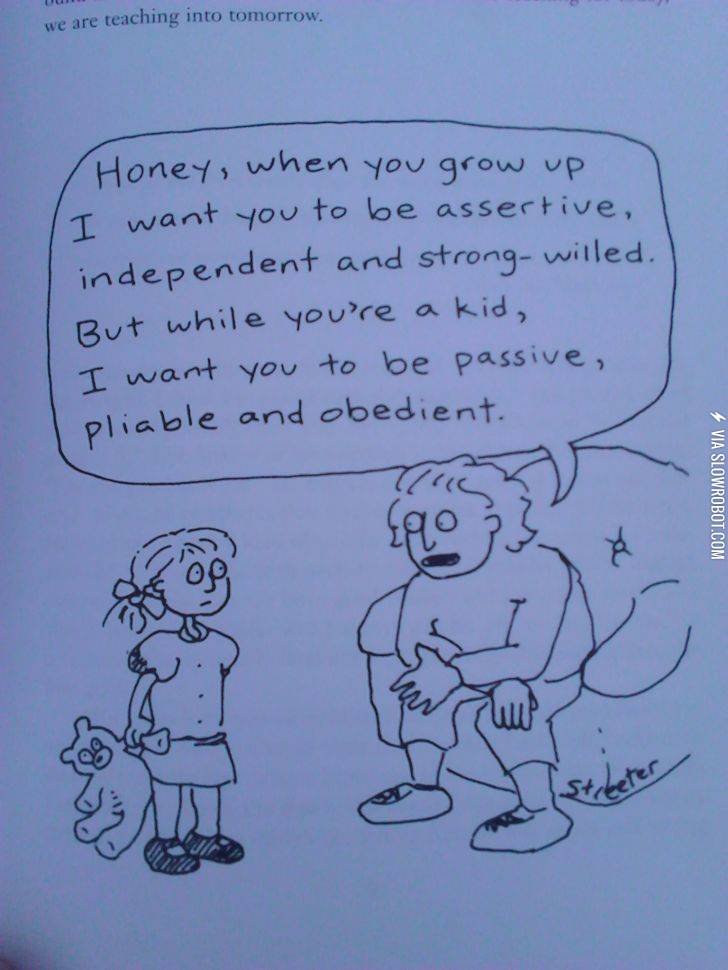 we are teaching into tomorrow.
Honey, when you grow up
I want you to be assertive,
independent and strong-willed.
But while you're a kid,
I want you to be passive,
pliable and obedient.
Streeter
VIA SLOWROBOT.COM